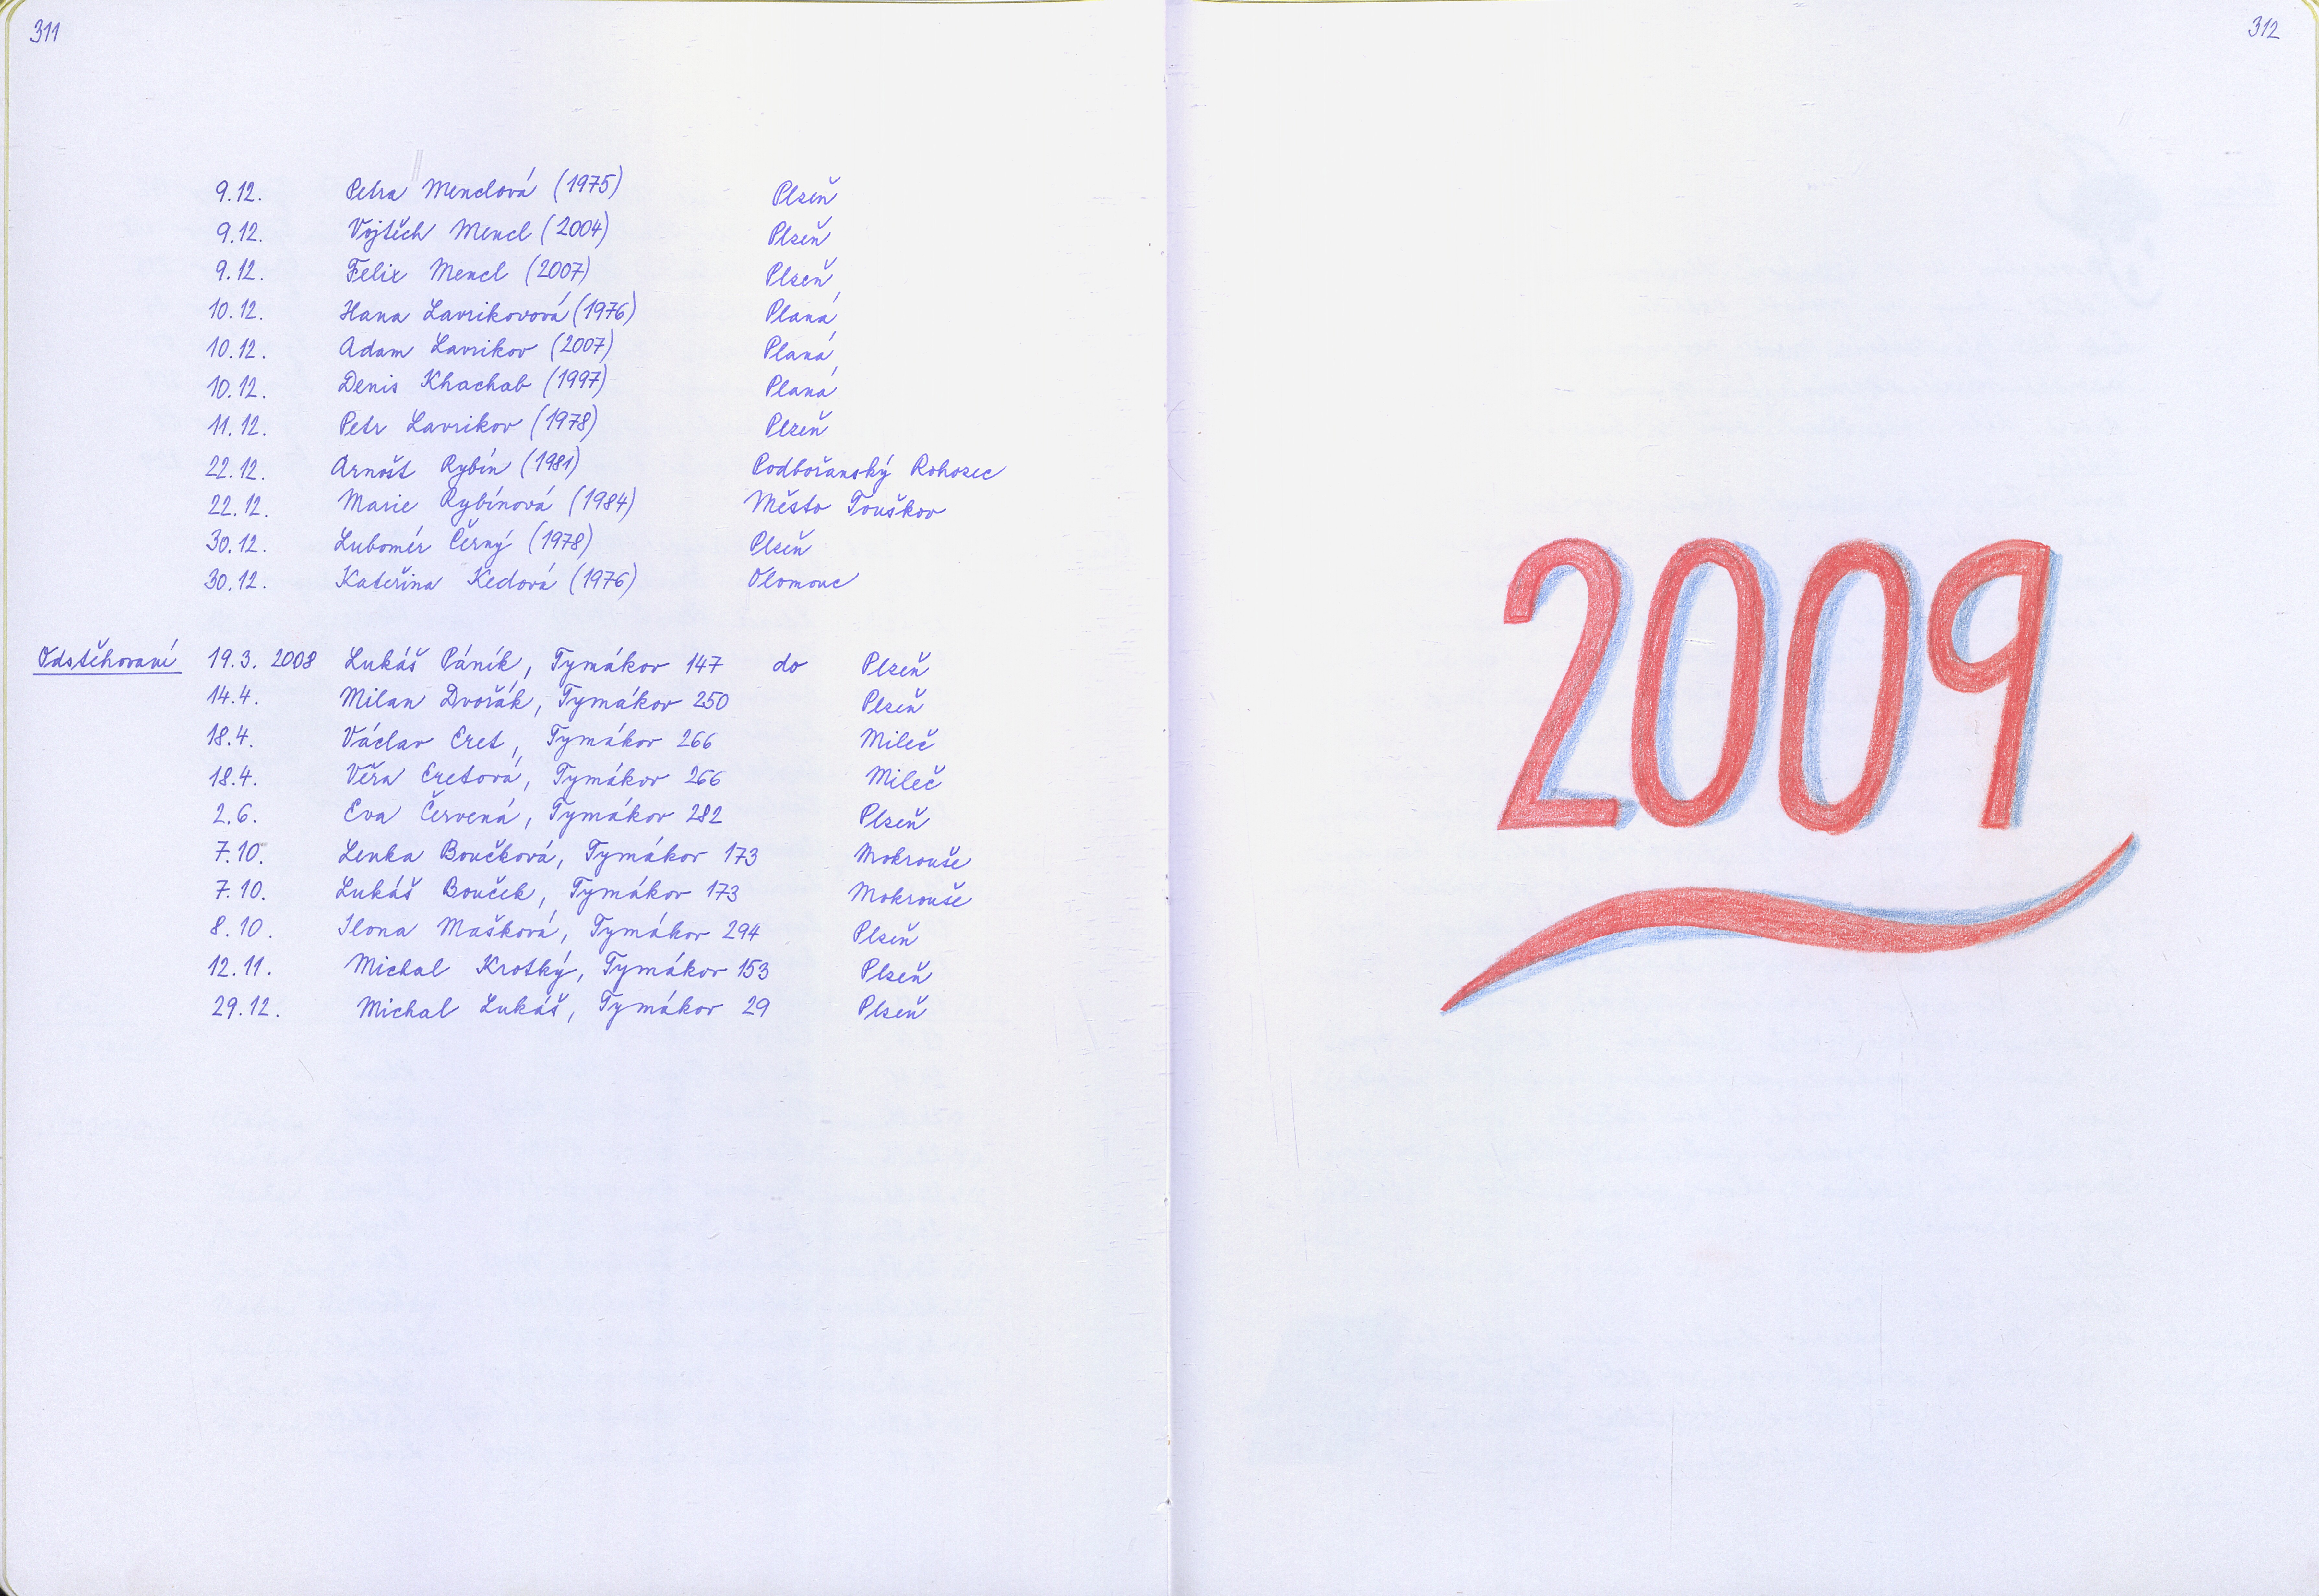 311
9.12. Petra Menclová (1975) Plzeň
9.12. Vojtěch Mencl (2004) Plzeň
9.12. Felix Mencl (2007) Plzeň
10.12. Hana Lavrikovová (1976) Planá
10.12. Adam Lavrikov (2007) Planá
10.12. Denis Khachab (1997) Planá
11.12. Petr Lavrikov (1978) Plzeň
22.12. Arnošt Rybín (1981) Podbořanský Rohozec
22.12. Marie Rybínová (1984) Město Touškov
30.12. Lubomír Černý (1978) Plzeň
30.12. Kateřina Kedová (1976) Olomouc
Odstěhovaní 19.3. 2008 Lukáš Páník, Tymákov 147 do Plzeň
14.4. Milan Dvořák, Tymákov 250 Plzeň
18.4. Václav Eret, Tymákov 266 Mileč
18.4. Věra Eretová, Tymákov 266 Mileč
2.6. Eva Červená, Tymákov 282 Plzeň
7.10. Lenka Boučková, Tymákov 173 Mokrouše
7.10. Lukáš Bouček, Tymákov 173 Mokrouše
8.10. Ilona Mašková, Tymákov 294 Plzeň
12.11. Michal Krotký, Tymákov 153 Plzeň
29.12. Michal Lukáš, Tymákov 29 Plzeň
312
2009